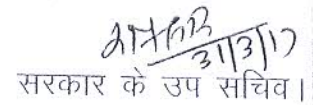 31/3/17
सरकार के उप सचिव।